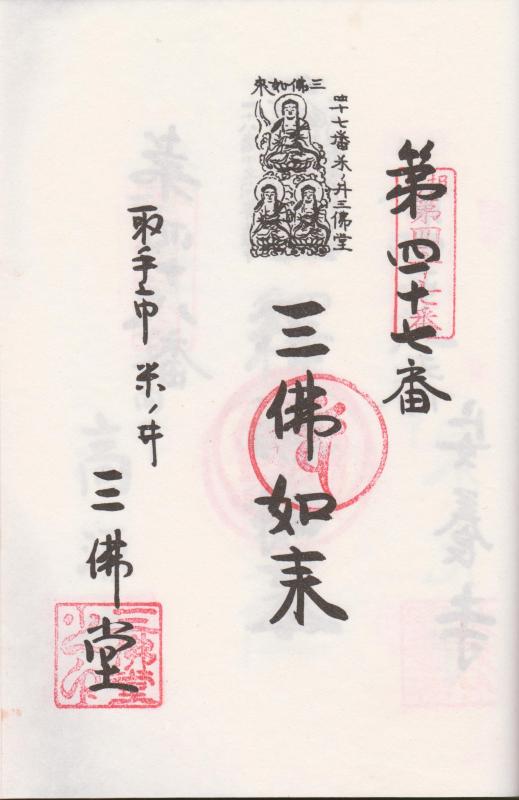 第四十七番
四十七番米ノ井三佛堂
三佛如来
三佛如来
取手市 米ノ井
三佛堂
第四十七番
三佛堂